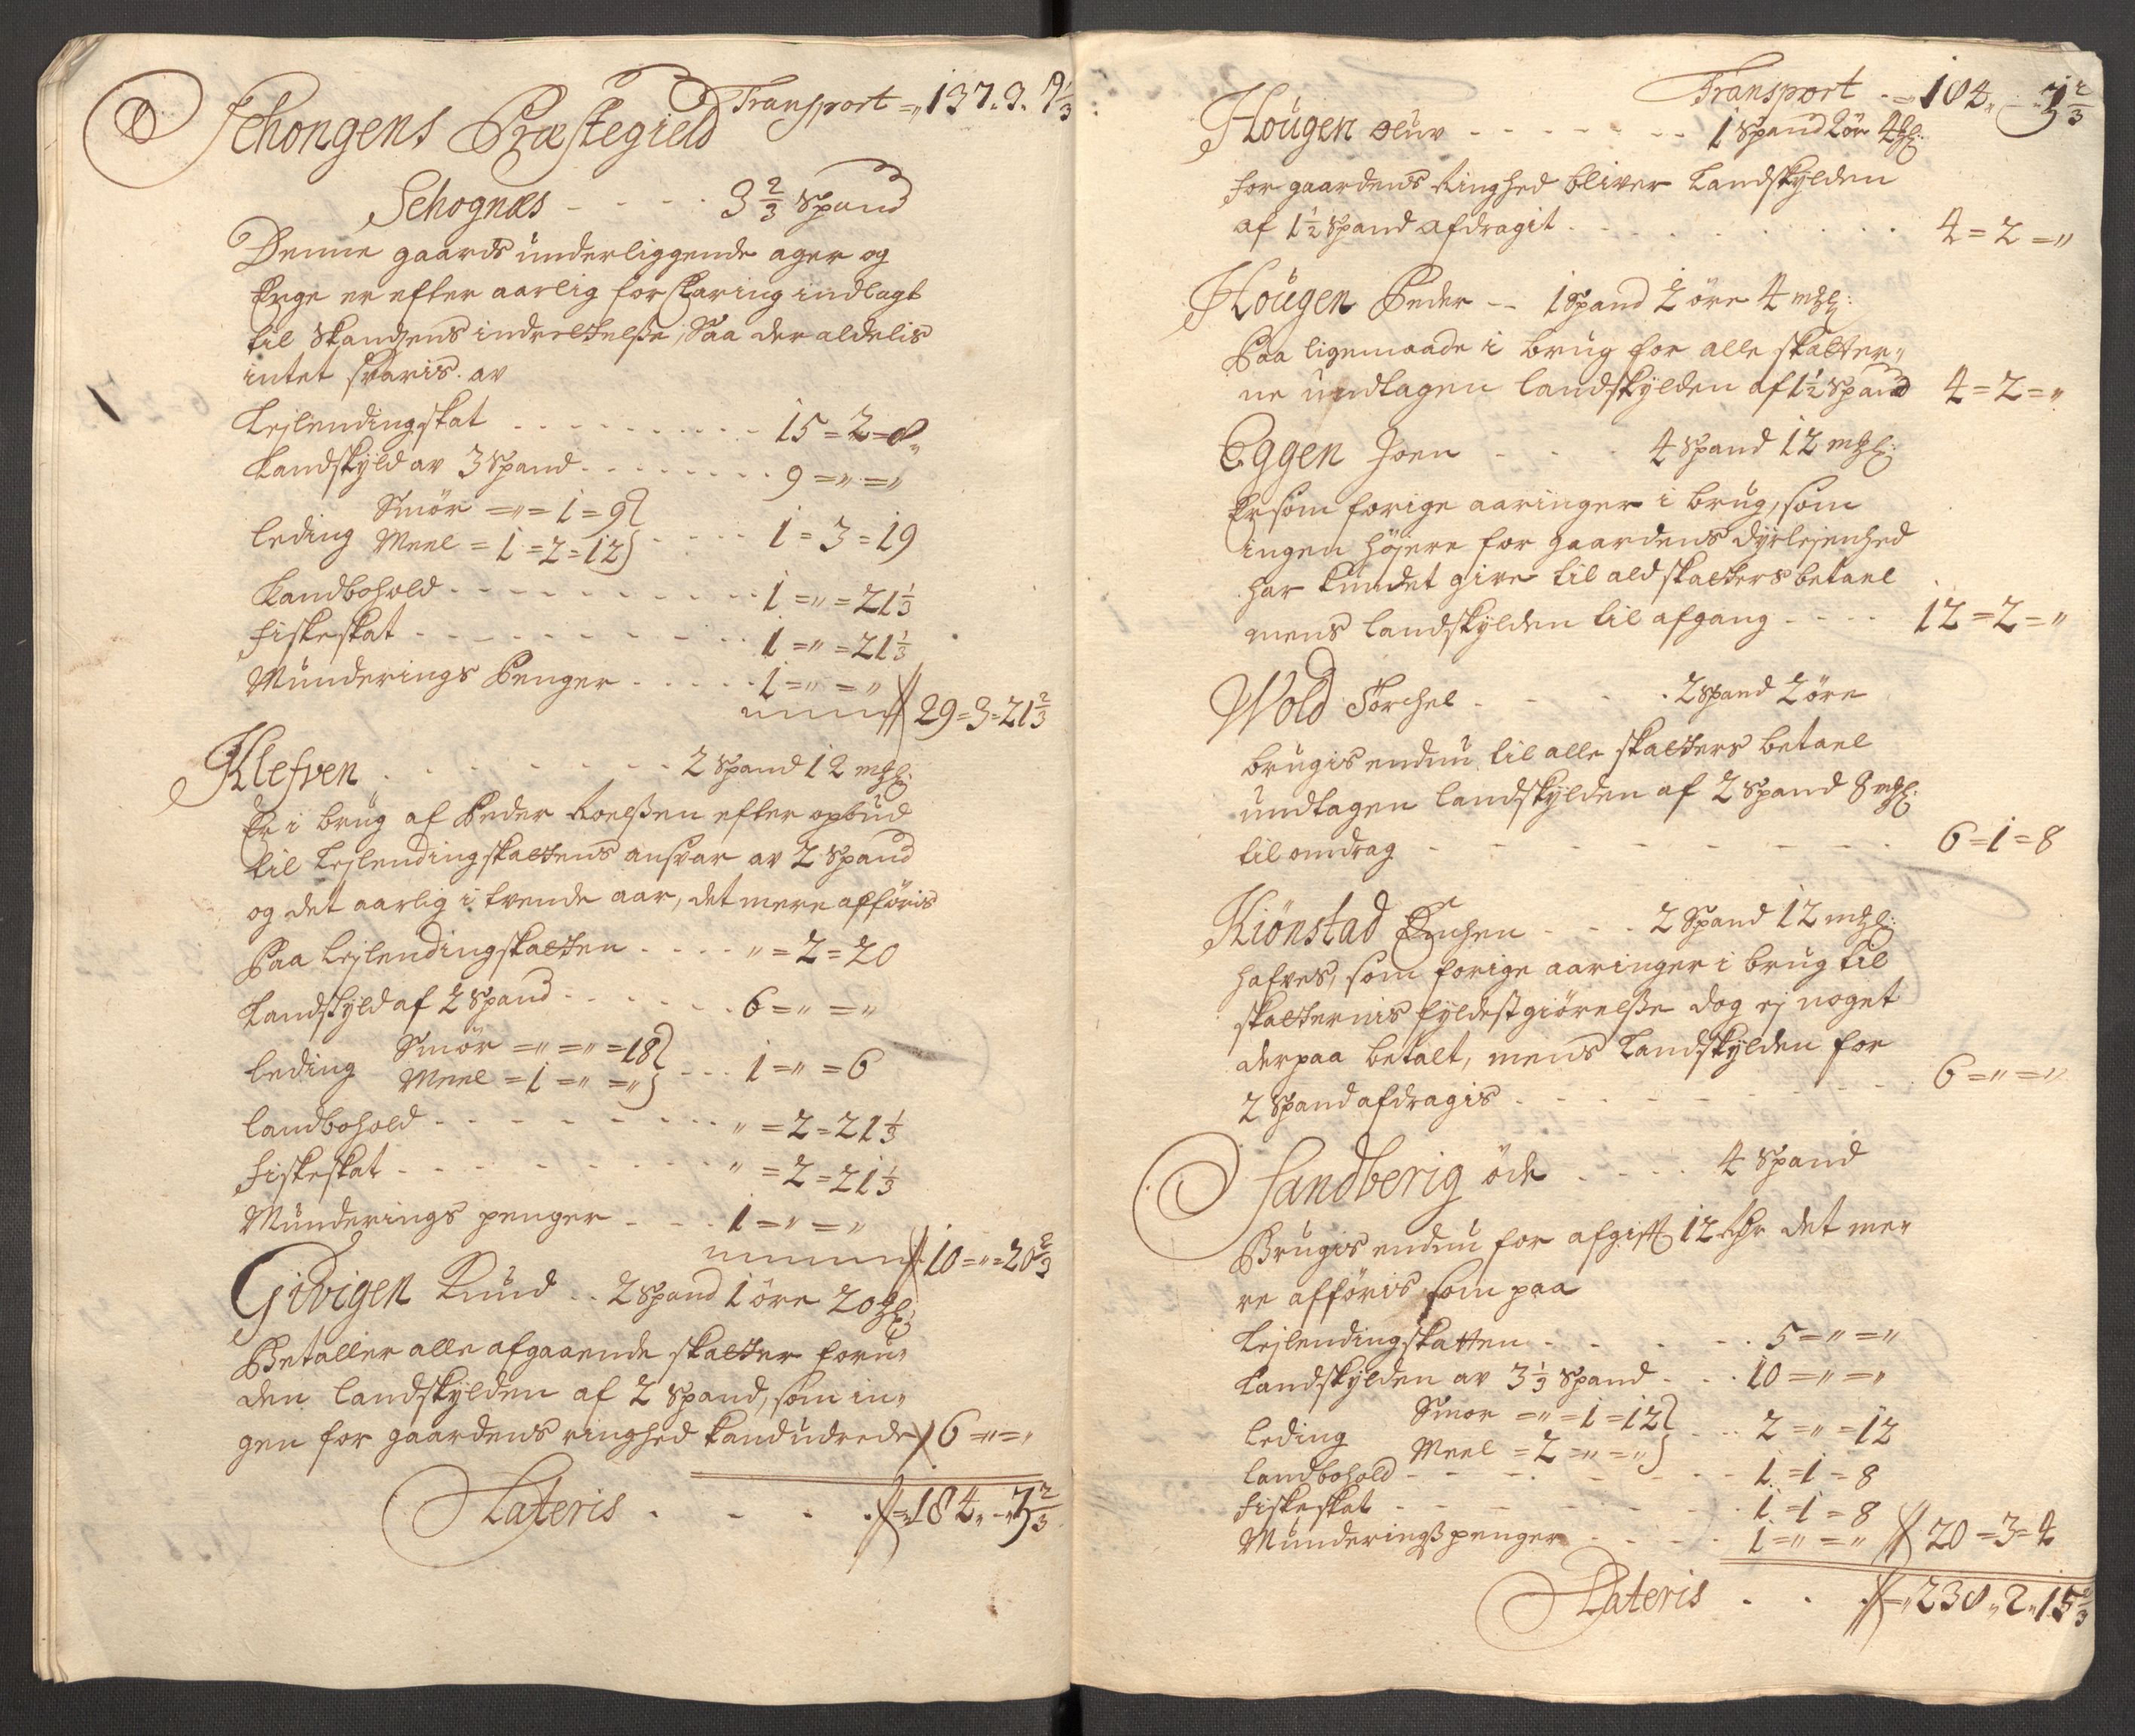 Transport =„ 137. 3. 7 1/3
Schongens Præstegield
Schognæs - - - - 3 2/3 Spand
Denne gaards underliggende ager og
Enge er efter aarlig forklaring indlagt
til Skandsens indrettelsse, Saa der aldelis
intet svaris. av
Leylendingskat - - - - - 15 = 2 = 8„
Landskyld av 3 Spand - - - - 9 = „ = „
leding Smör = „ = 1 = 9
Meel = 1 = 2 = 12 - - - 1 = 3 = 19
Landbohold - - - - - 1 = „ = 21 1/3
Fiskeskat - - - - - 1 = „ = 21 1/3
Munderings Penger - - - - 1 = „ = „
29 = 3 = 21 2/3
Klefven - - - - - 2 Spand 12 mgl:
Er i brug af Peder Roelssen efter opbud
til Leylendingskattens ansvar av 2 Spand
og det aarlig i trende aar, det mere afföris
Paa Leylendingskatten - - - - „ = 2 = 20
Landskyld af 2 Spand - - - - 6 = „ = „
leding Smör = „ = „ = 18
Meel = 1 = „ = „ - - - 1 = „ = 6
landbohold - - - - - „ = 2 = 21 1/3
Fiskeskat - - - - - „ = 2 = 21 1/3
Munderings penger - - - 1 = „ = „
10 = „ = 20 2/3
Gidvigen Knud - - 2 Spand 1 öre 20 mgl:
Betaller alle afgaaende skatter foru„
den landskylden af 2 Spand, som in„
gen for gaardens ringhed kand udrede 6 = „ = „
Lateris - - - - 184„ - „ 7 2/3
Transport - = 184„ - „ 7 2/3
Hougen Oluv - - - - - 1 Spand 2 ör 4 mgl:
for gaardens Ringhed bliver Landskylden
af 1 1/2 Spand afdragit - - - - - 4 = 2 = „
Hougen Peder - - 1 Spand 2 öre 4 mgl:
Paa ligemaade i brug for alle skatter„
ne undtagen landskylden af 1 1/2 Spand 4 = 2 = „
Eggen Joen - - - 4 Spand 12 mgl:
Er som forige aaringer i brug, som
ingen höjere for gaardens dyrlejenhed
har kundet give til ald skatters betael
mens landskylden til afgang - - - - 12 = 2 = „
Wold Torchel - - - - 2 Spand 2 öre
brugis endnu til alle skatters betael
undtagen landskylden af 2 Spand 8 mgl:
til omdrag - - - - - 6 = 1 = 8
Kiönstad Enchen - - - 2 Spand 12 mgl:
hafves, som forige aaringer i brug til
skatternis fyldestgiörelsse dog ej noget
derpaa betalt, mens Landskylden for
2 Spand afdragis - - - - - 6 = „ = „
Sandberig öde - - - - 4 Spand
Brugis endnu for afgift 12 rdr det me„
re afföris som paa
Leylendingskatten - - - - - 5 = „ = „
Landskylden av 3 1/3 Spand - - - 10 = „ = „
leding Smor = „ = 1 = 12
Meel = 2 = „ = „ - - - 2 = „ = 12
landbohold - - - - - 1 = 1 = 8
Fiskeskat - - - - - 1 = 1 = 8
Munderingspenger - - - - 1 = „ = „ 20 = 3 = 4
Lateris - - - = 238„ 2„ 15 2/3